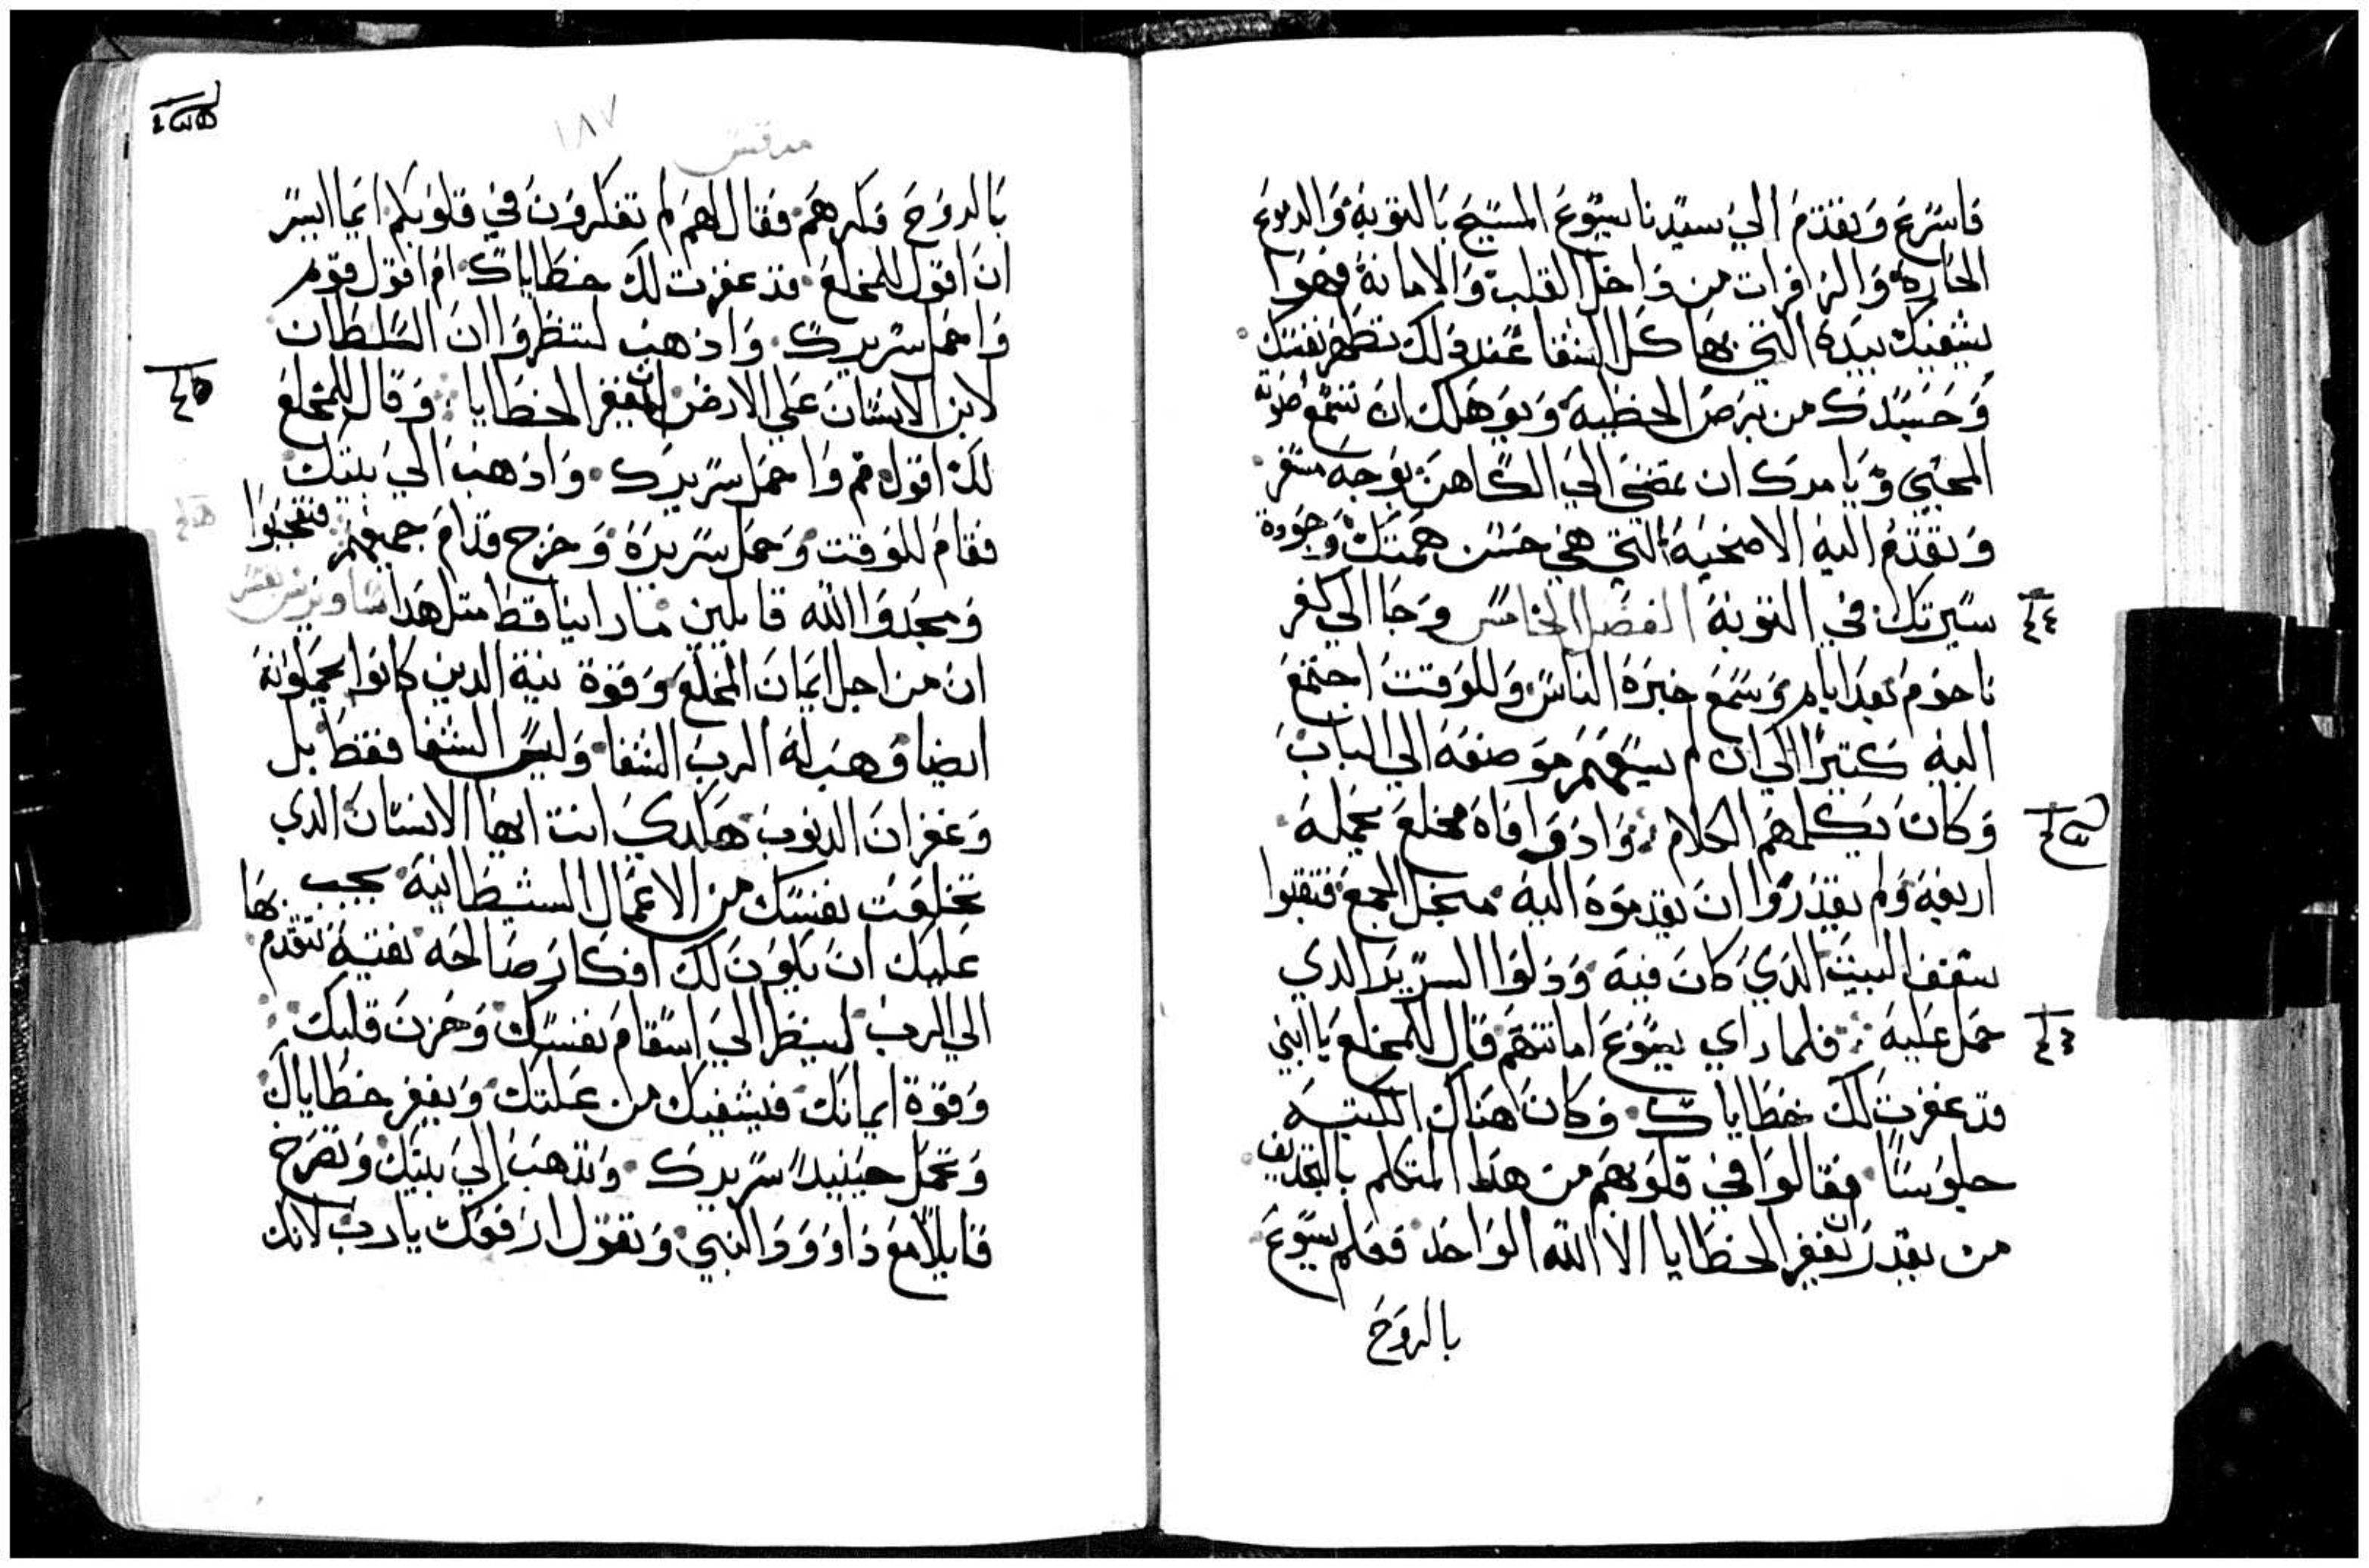 فاسرع وتقدم الي سيدنا يسوع المسيح بالتوبة والدموع
الحارة والزافرات من داخل القلب والامانة فهوا
يشفيك بيده التي بها كل الشفا عند دلك تطهر نفسك
وحسدك من برص الخطية ويوهلك ان تسمع صوته
المحيي ويامرك ان تمضي الي الكاهن بوجه مسفر
وتقدم اليه الاضحية التي هي حسن همتك وجودة
سيرتك في التوبة الفصل الخامس وجا الي كفر
ناحوم بعد ايام وسمع خبره الناس وللوقت اجتمع
اليه كتيرا الي ان لم يسعهم موضعه الي الباب
وكان يكلمهم الكلام وادوافاه مخلع يحمله
اربعة ولم يقدروا ان يقدموه اليه من اجل الجمع فنقبوا
سقف البيت الدي كان فيه ودلوا السرير الدي
حمل عليه فلما راي يسوع امانتهم قال للمخلع يا ابني
قد غفرت لك خطاياك وكان هناك الكتبه
جلوسا فقالوا في قلوبهم من هدا المتكلم بالتجديف
من يقدر ان يغفر الخطايا الا الله الواحد فعلم يسوع
بالروح
مرقس ١٨٧
بالروح فكرهم فقال لهم لم تفكرون في قلوبكم ايما ايسر
ان اقول للمخلع قد غفرت لك خطاياك ام اقول قوم
واحمل سريرك وادهب لتنظروا ان السلطان
لابن الانسان علي الارض ان يغفر الخطايا وقال للمخلع
لك اقول قم واحمل سريرك وادهب الي بيتك
فقام للوقت وحمل سريره وخرج قدام جميعهم فتعجبوا
ومجدوا الله قايلين ما راينا قط متل هدا
ان من اجل ايمان المخلع وقوة نية الدين كانوا يحملونه
ايضا وهب له الرب الشفا وليس الشفا فقط بل
وغفران الدنوب هكدي انت ايها الانسان الدي
تخلعت نفسك من الاعمال الشيطانية يجب
عليك ان يكون لك افكار صالحه نقية تتقدم بها
الي الرب لينظر الي اسقام نفسك وحزن قلبك
وقوة ايمانك فيشفيك من علتك ويغفر خطاياك
وتحمل حينيد سريرك وتدهب الي بيتك وتفرح
قايلا مع داوود النبي وتقول ارفعك يا رب لانك